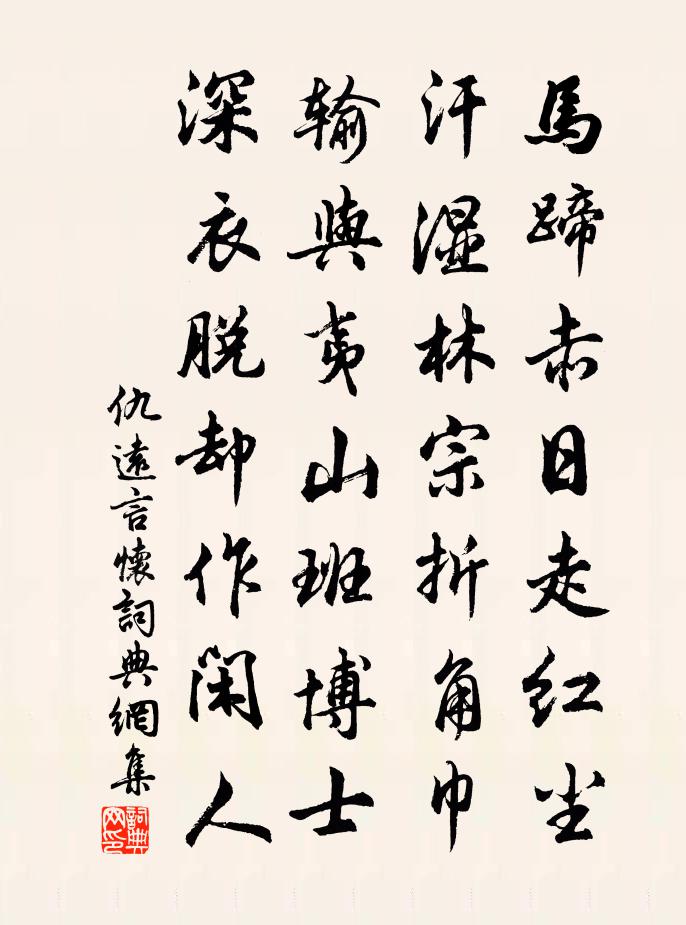 馬蹄赤日走红尘
汗濕林宗折角巾
输與夷山班博士
深衣脱却作闲人
仇遠言懷詞典網集
詞典网印